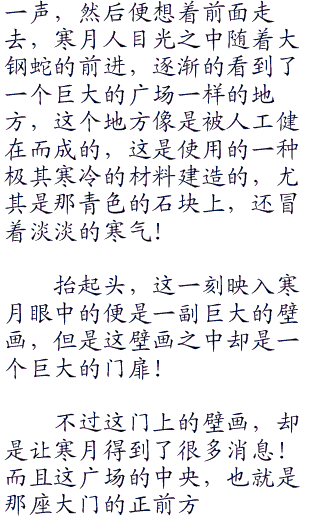 一声，然后便想着前面走
去，寒月人目光之中随着大
钢蛇的前进，逐渐的看到了
一个巨大的广场一样的地
方，这个地方像是被人工健
在而成的，这是使用的一种
极其寒冷的材料建造的，尤
其是那青色的石块上，还冒
着淡淡的寒气！
抬起头，这一刻映入寒
月眼中的便是一副巨大的壁
画，但是这壁画之中却是一
个巨大的门扉！
不过这门上的壁画，却
是让寒月得到了很多消息！
而且这广场的中央，也就是
那座大门的正前方